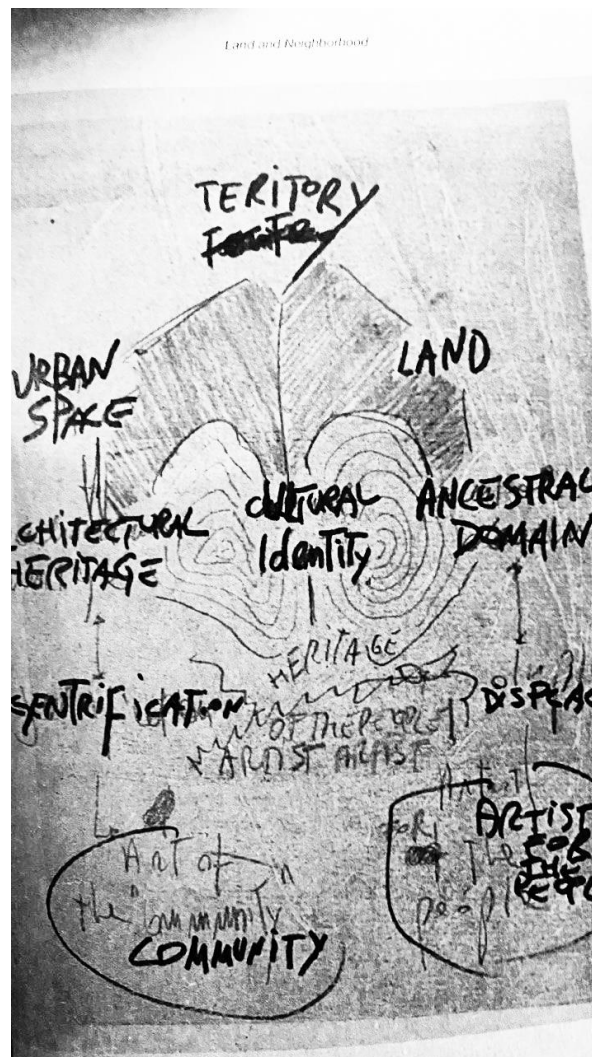 Land and Neighborhood
TERITORY
URBAN
SPACE
LAND
CHITECTURAL
HERITAGE
CULTURAL
Identity
ANCESTRAL
DOMAIN
HERITAGE
GENTRIFICATION
OF THE PEOPLE
ARTIST ARTIST
DISPLAC
Art of in
the community
COMMUNITY
for
the
people
ARTIST
FOR
THE
PEOPL